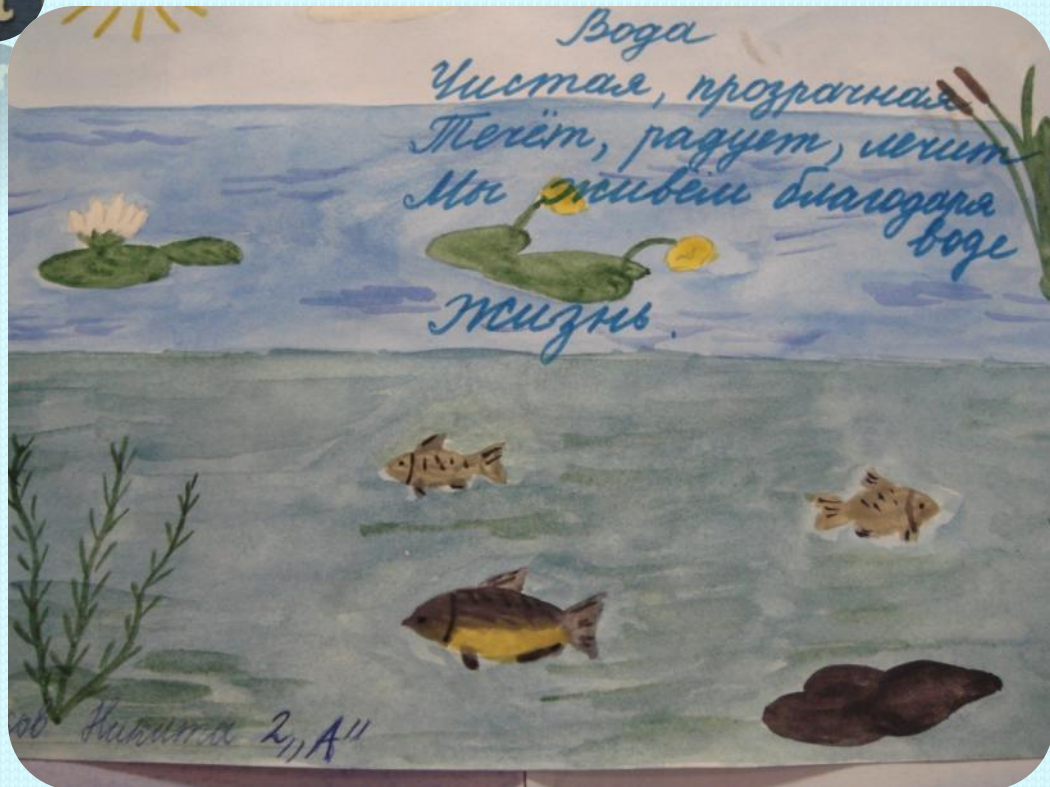 Вода
Чистая, прозрачная
Течёт, радует, лечит
Мы живём благодаря
воде
Жизнь.
Никита 2 „А"